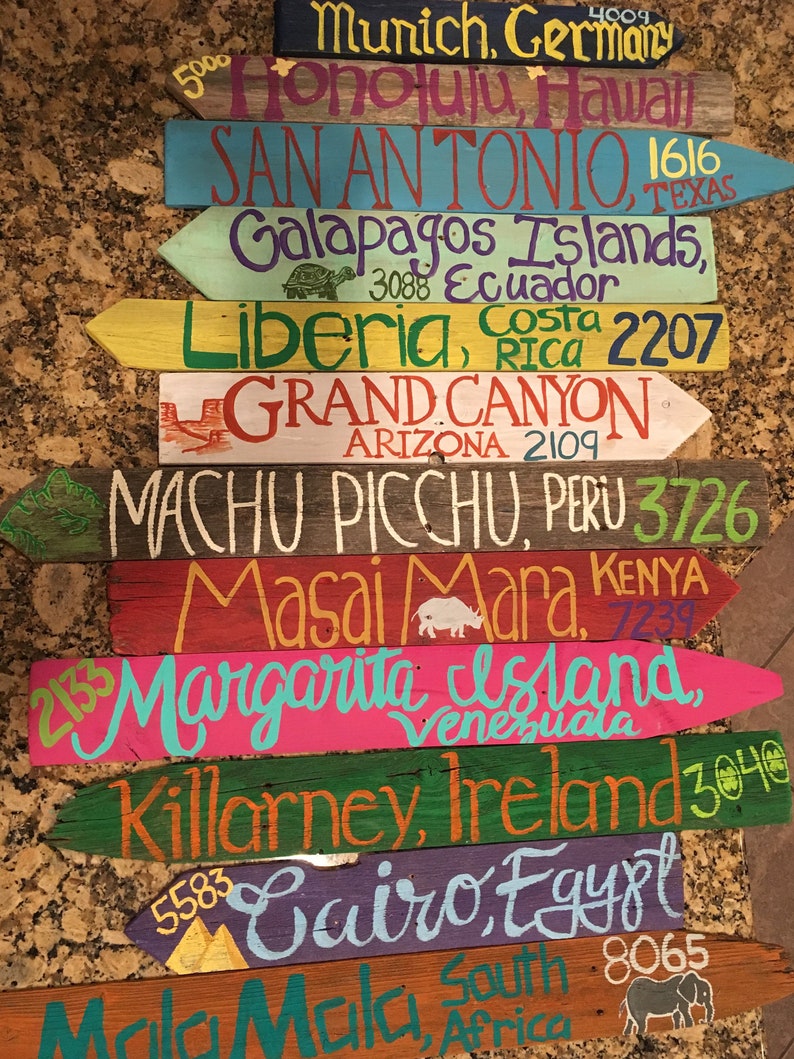 4009
Munich, Germany
5000
Honolulu, Hawaii
SAN ANTONIO, 1616
TEXAS
Galapagos Islands,
3088 Ecuador
Liberia, Costa Rica 2207
GRAND CANYON
ARIZONA 2109
MACHU PICCHU, PERU 3726
Masai Mara, KENYA
7239
2133 Margarita Island,
Venezuala
Killarney, Ireland 3040
5583 Cairo, Egypt
8065
MalaMala, South Africa